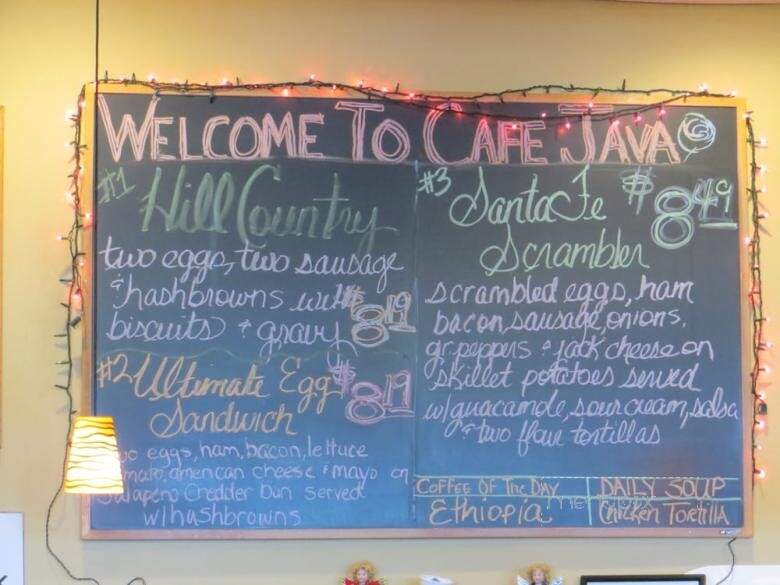 WELCOME TO CAFE JAVA
#1 Hill Country
two eggs, two sausage
& hashbrowns with
biscuits & gravy $8.19
#2 Ultimate Egg
Sandwich $8.19
two eggs, ham, bacon, lettuce
tomato, american cheese & mayo on
Jalapeno Chedder bun served
w/hashbrowns
#3 Santa Fe $8.49
Scrambler
scrambled eggs, ham
bacon, sausage, onions,
gr. peppers & jack cheese on
skillet potatoes served
w/guacamole, sour cream, salsa
& two flour tortillas
COFFEE OF THE DAY
Ethiopia
DAILY SOUP
Chicken Tortilla